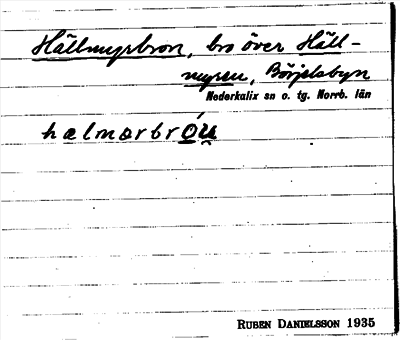 Hällmyrbron, bro över Häll-
myren, Börjelsbyn
Nederkalix sn o. tg. Norrb. län
hælmʌrbróu̯
RUBEN DANIELSSON 1935